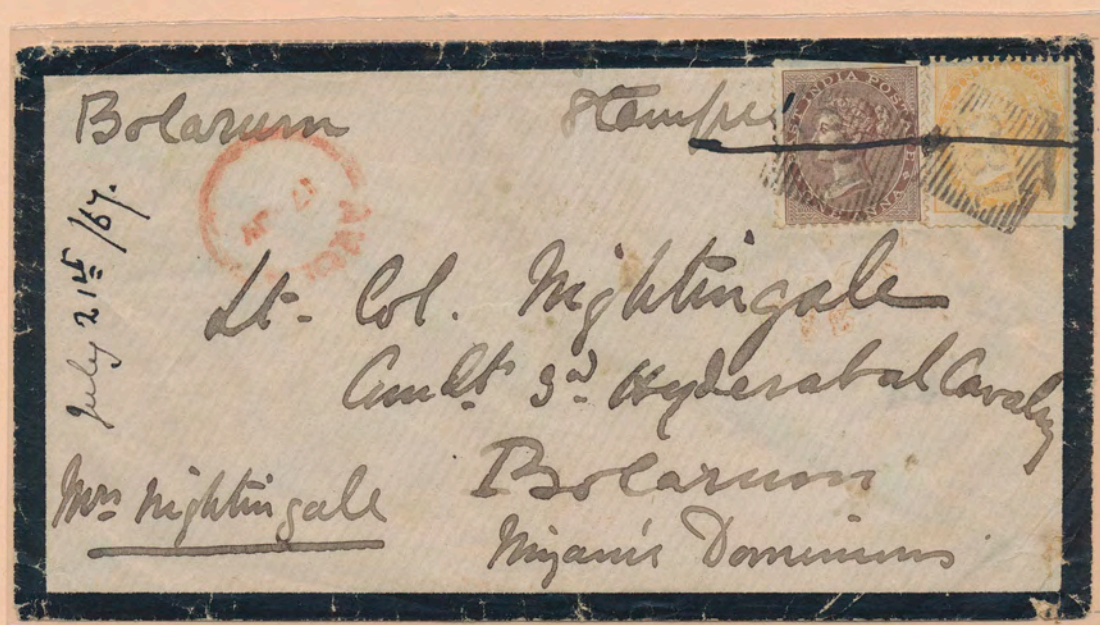 Bolarum
Stamped
EAST INDIA POSTAGE
ONE ANNA
July 21st /67.
Lt. Col. Nightingale
Cmdt 3d Hyderabad Cavalry
Bolarum
Nizam's Dominions
Mrs Nightingale